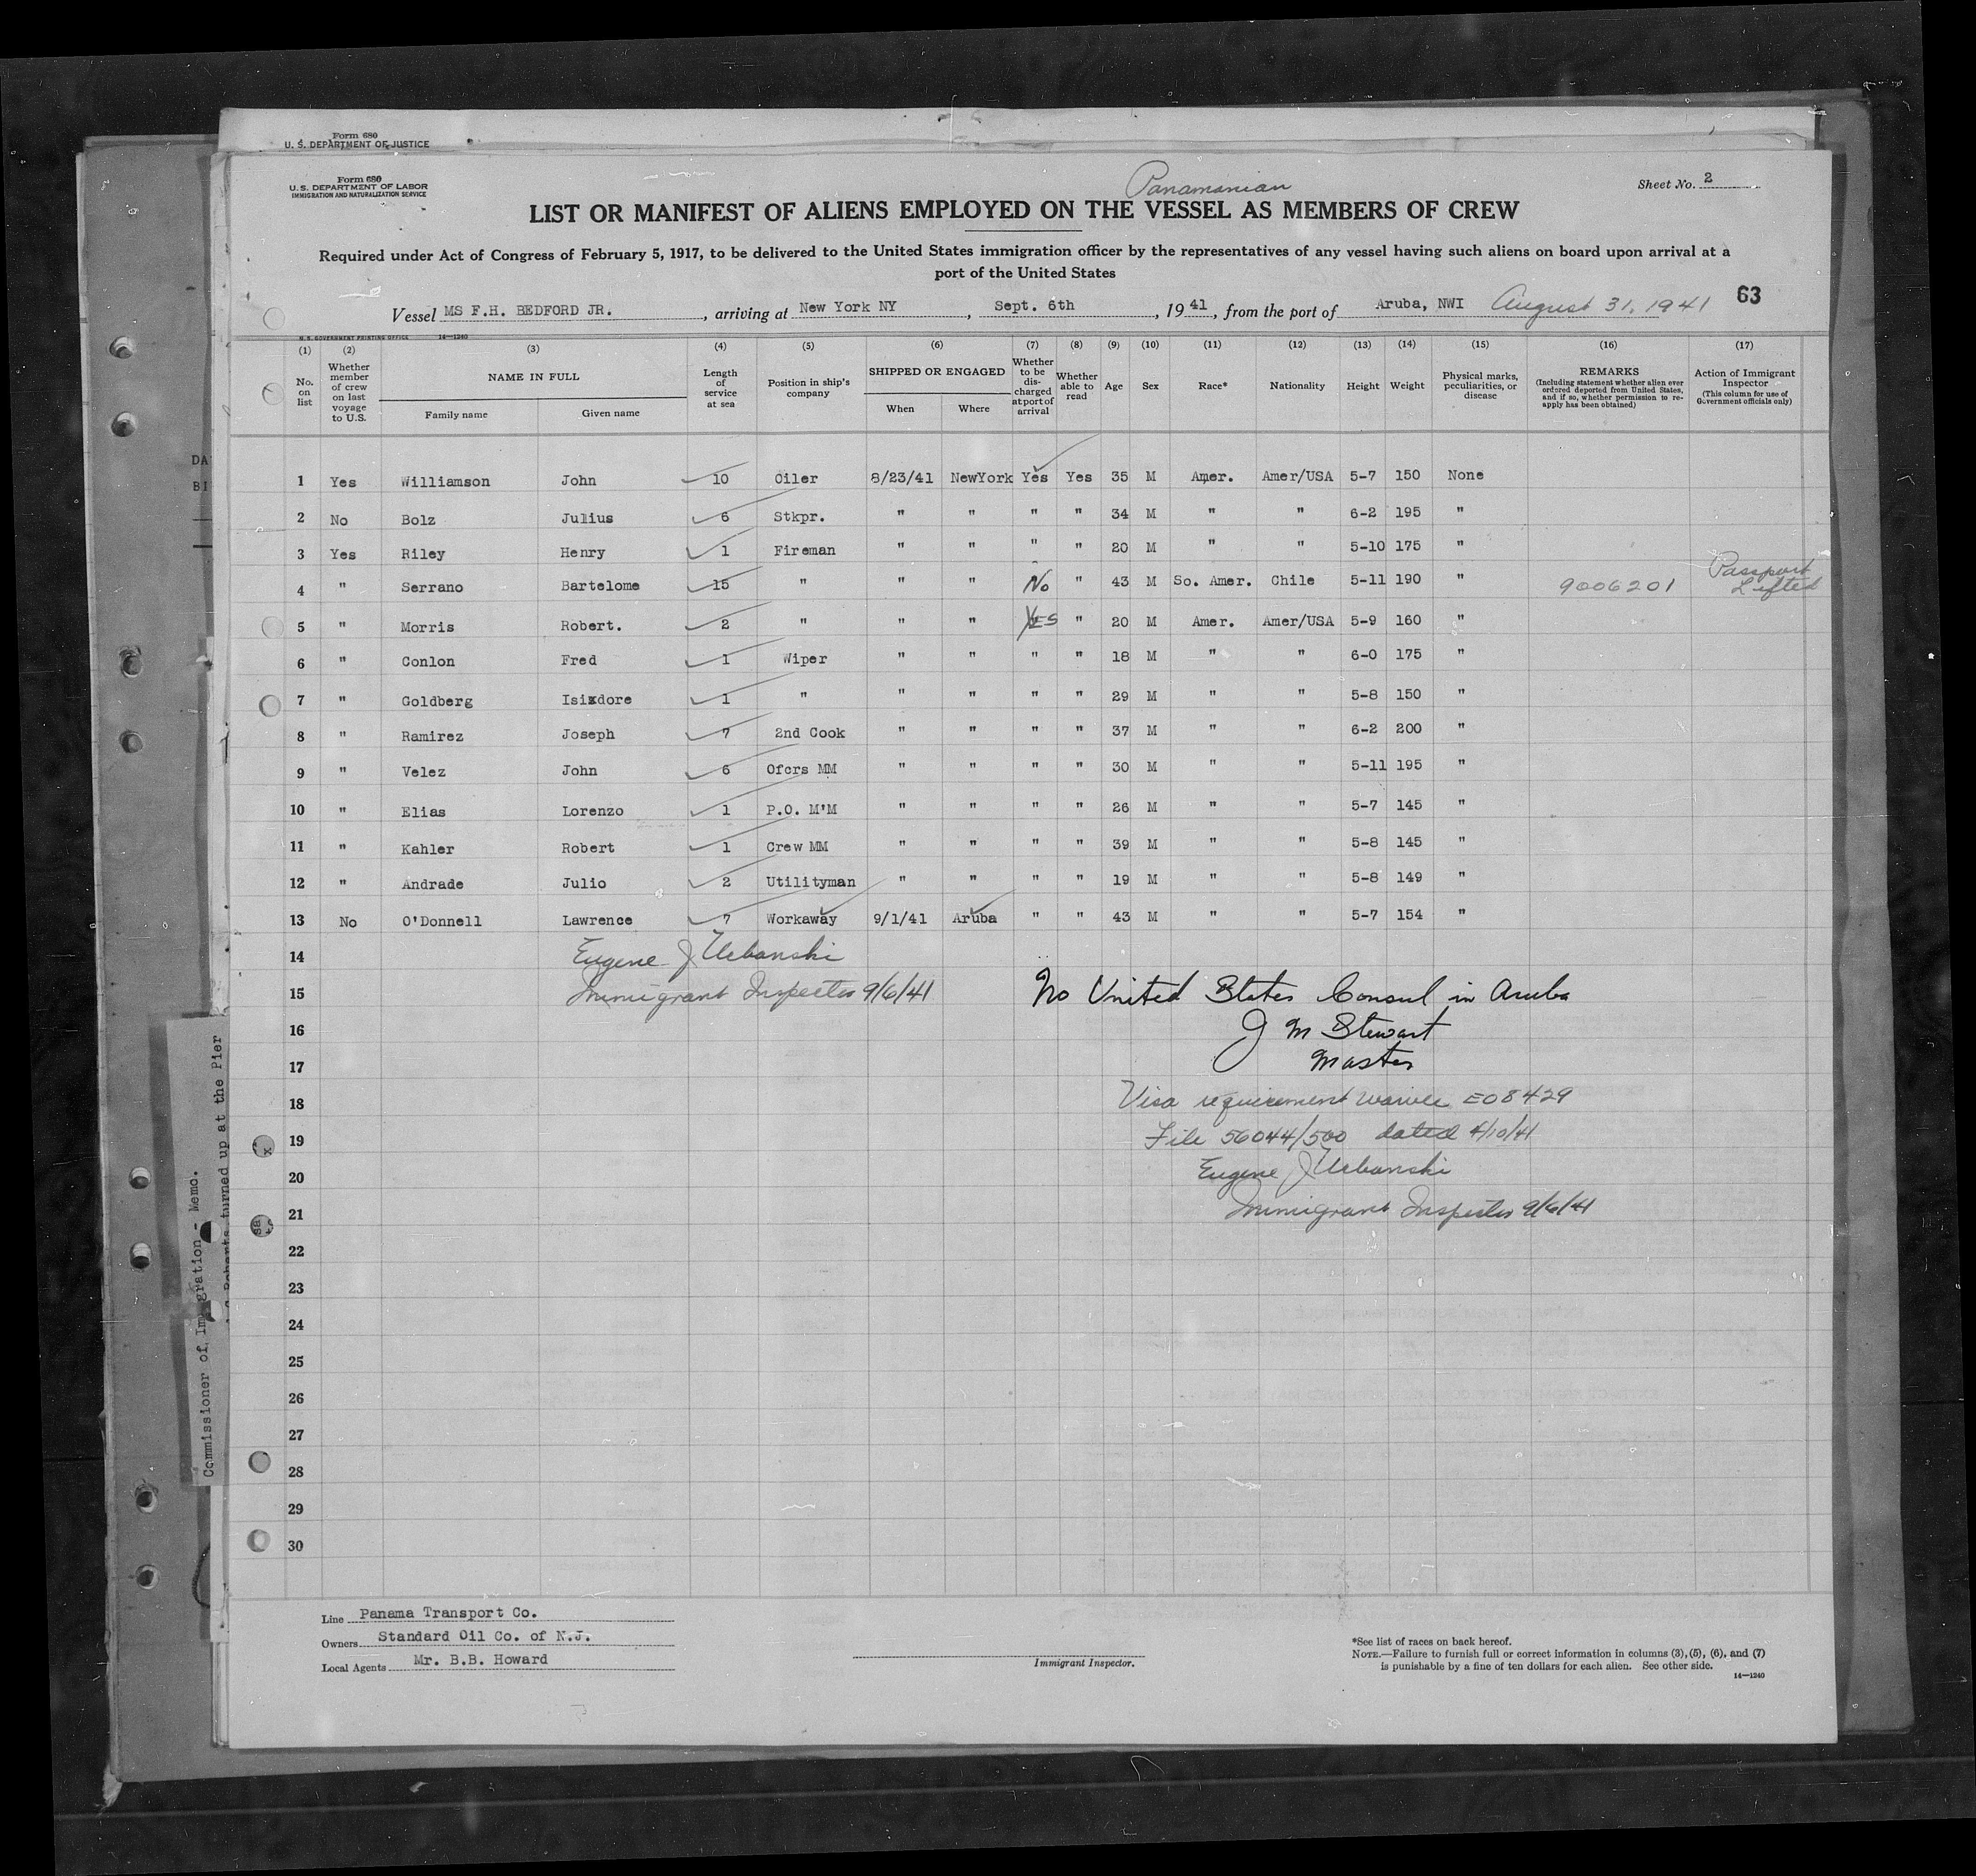 Form 680
U. S. DEPARTMENT OF JUSTICE
Form 680
U. S. DEPARTMENT OF LABOR
IMMIGRATION AND NATURALIZATION SERVICE
Panamanian
Sheet No. 2
LIST OR MANIFEST OF ALIENS EMPLOYED ON THE VESSEL AS MEMBERS OF CREW
Required under Act of Congress of February 5, 1917, to be delivered to the United States immigration officer by the representatives of any vessel having such aliens on board upon arrival at a
port of the United States
63
Vessel MS F.H. BEDFORD JR. , arriving at New York NY , Sept. 6th , 19 41 , from the port of Aruba, NWI August 31, 1941
U. S. GOVERNMENT PRINTING OFFICE 14—1240
(1) (2) (3) (4) (5) (6) (7) (8) (9) (10) (11) (12) (13) (14) (15) (16) (17)
No. on list
Whether member of crew on last voyage to U.S.
NAME IN FULL
Family name Given name
Length of service at sea
Position in ship's company
SHIPPED OR ENGAGED
When Where
Whether to be discharged at port of arrival
Whether able to read
Age
Sex
Race*
Nationality
Height
Weight
Physical marks, peculiarities, or disease
REMARKS
(Including statement whether alien ever ordered deported from United States, and if so, whether permission to re-apply has been obtained)
Action of Immigrant Inspector
(This column for use of Government officials only)
1 Yes Williamson John 10 Oiler 8/23/41 NewYork Yes Yes 35 M Amer. Amer/USA 5-7 150 None
2 No Bolz Julius 6 Stkpr. " " " " 34 M " " 6-2 195 "
3 Yes Riley Henry 1 Fireman " " " " 20 M " " 5-10 175 "
4 " Serrano Bartelome 15 " " " No " 43 M So. Amer. Chile 5-11 190 " 9006201 Passport Lifted
5 " Morris Robert. 2 " " " YES " 20 M Amer. Amer/USA 5-9 160 "
6 " Conlon Fred 1 Wiper " " " " 18 M " " 6-0 175 "
7 " Goldberg Isixdore 1 " " " " " 29 M " " 5-8 150 "
8 " Ramirez Joseph 7 2nd Cook " " " " 37 M " " 6-2 200 "
9 " Velez John 6 Ofcrs MM " " " " 30 M " " 5-11 195 "
10 " Elias Lorenzo 1 P.O. M'M " " " " 26 M " " 5-7 145 "
11 " Kahler Robert 1 Crew MM " " " " 39 M " " 5-8 145 "
12 " Andrade Julio 2 Utilityman " " " " 19 M " " 5-8 149 "
13 No O'Donnell Lawrence 7 Workaway 9/1/41 Aruba " " 43 M " " 5-7 154 "
14 Eugene J Urbanski
15 Immigrant Inspector 9/6/41 No United States Consul in Aruba
16 J M Stewart
17 Master
18 Visa requirement waived EO8429
19 File 56044/500 dated 4/10/41
20 Eugene J Urbanski
21 Immigrant Inspector 9/6/41
22
23
24
25
26
27
28
29
30
Commissioner of Immigration - Memo.
Roberts turned up at the Pier
Line Panama Transport Co.
Owners Standard Oil Co. of N.J.
Local Agents Mr. B.B. Howard
Immigrant Inspector.
*See list of races on back hereof.
NOTE.—Failure to furnish full or correct information in columns (3), (5), (6), and (7)
is punishable by a fine of ten dollars for each alien. See other side.
14—1240